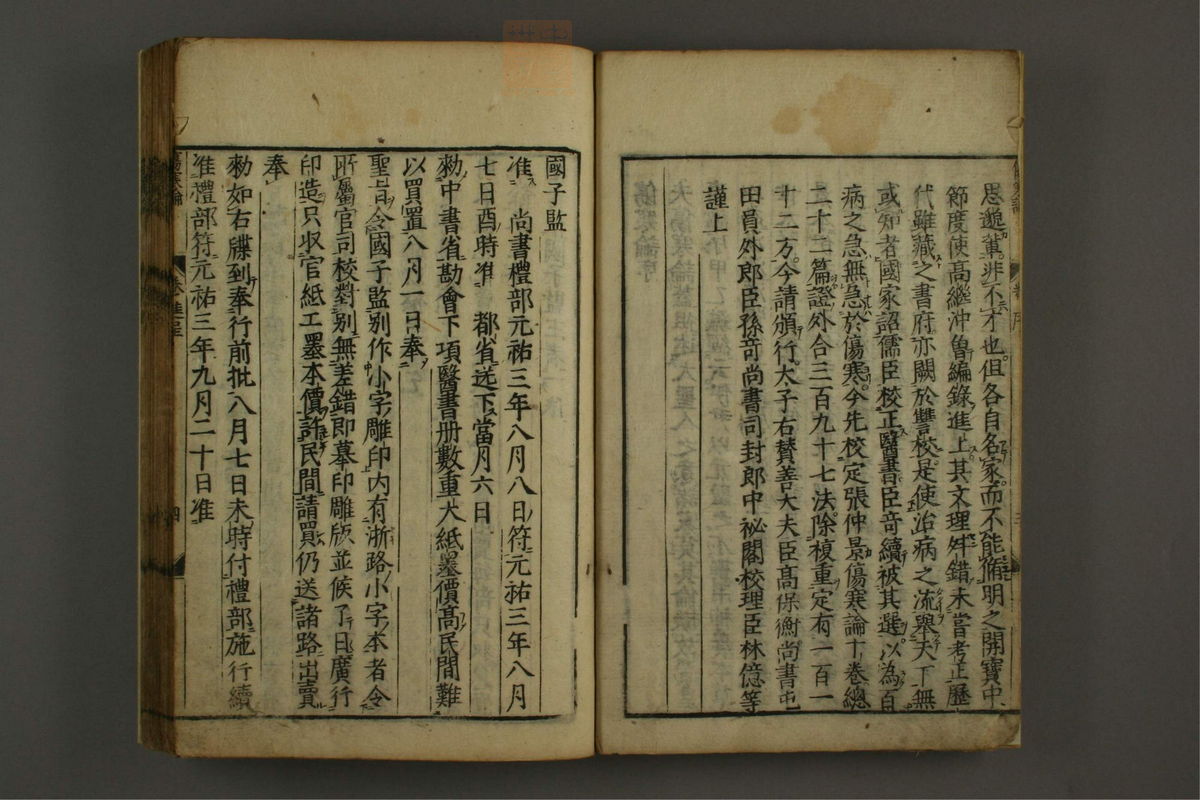 思邈輩非不才也但各自名家而不能脩明之開寶中
節度使高繼沖曽編錄進上其文理舛錯未嘗考正歷
代雖藏之書府亦闕於讐校是使治病之流舉天下無
或知者國家詔儒臣校正醫書臣竒續被其選以為百
病之急無急於傷寒今先校定張仲景傷寒論十卷總
二十二篇證外合三百九十七法除複重定有一百一
十二方今請頒行太子右賛善大夫臣高保衡尚書屯
田員外郎臣孫竒尚書司封郎中祕閣校理臣林億等
謹上
國子監
准尚書禮部元祐三年八月八日符元祐三年八月
七日酉時准都省送下當月六日
勑中書省勘會下項醫書册數重大紙墨價高民間難
以買置八月一日奉
聖旨令國子監别作小字雕印内有浙路小字本者令
所屬官司校對别無差錯即摹印雕版並候了日廣行
印造只収官紙工墨本價許民間請買仍送諸路出賣
奉
勑如右牒到奉行前批八月七日未時付禮部施行續
准禮部符元祐三年九月二十日准